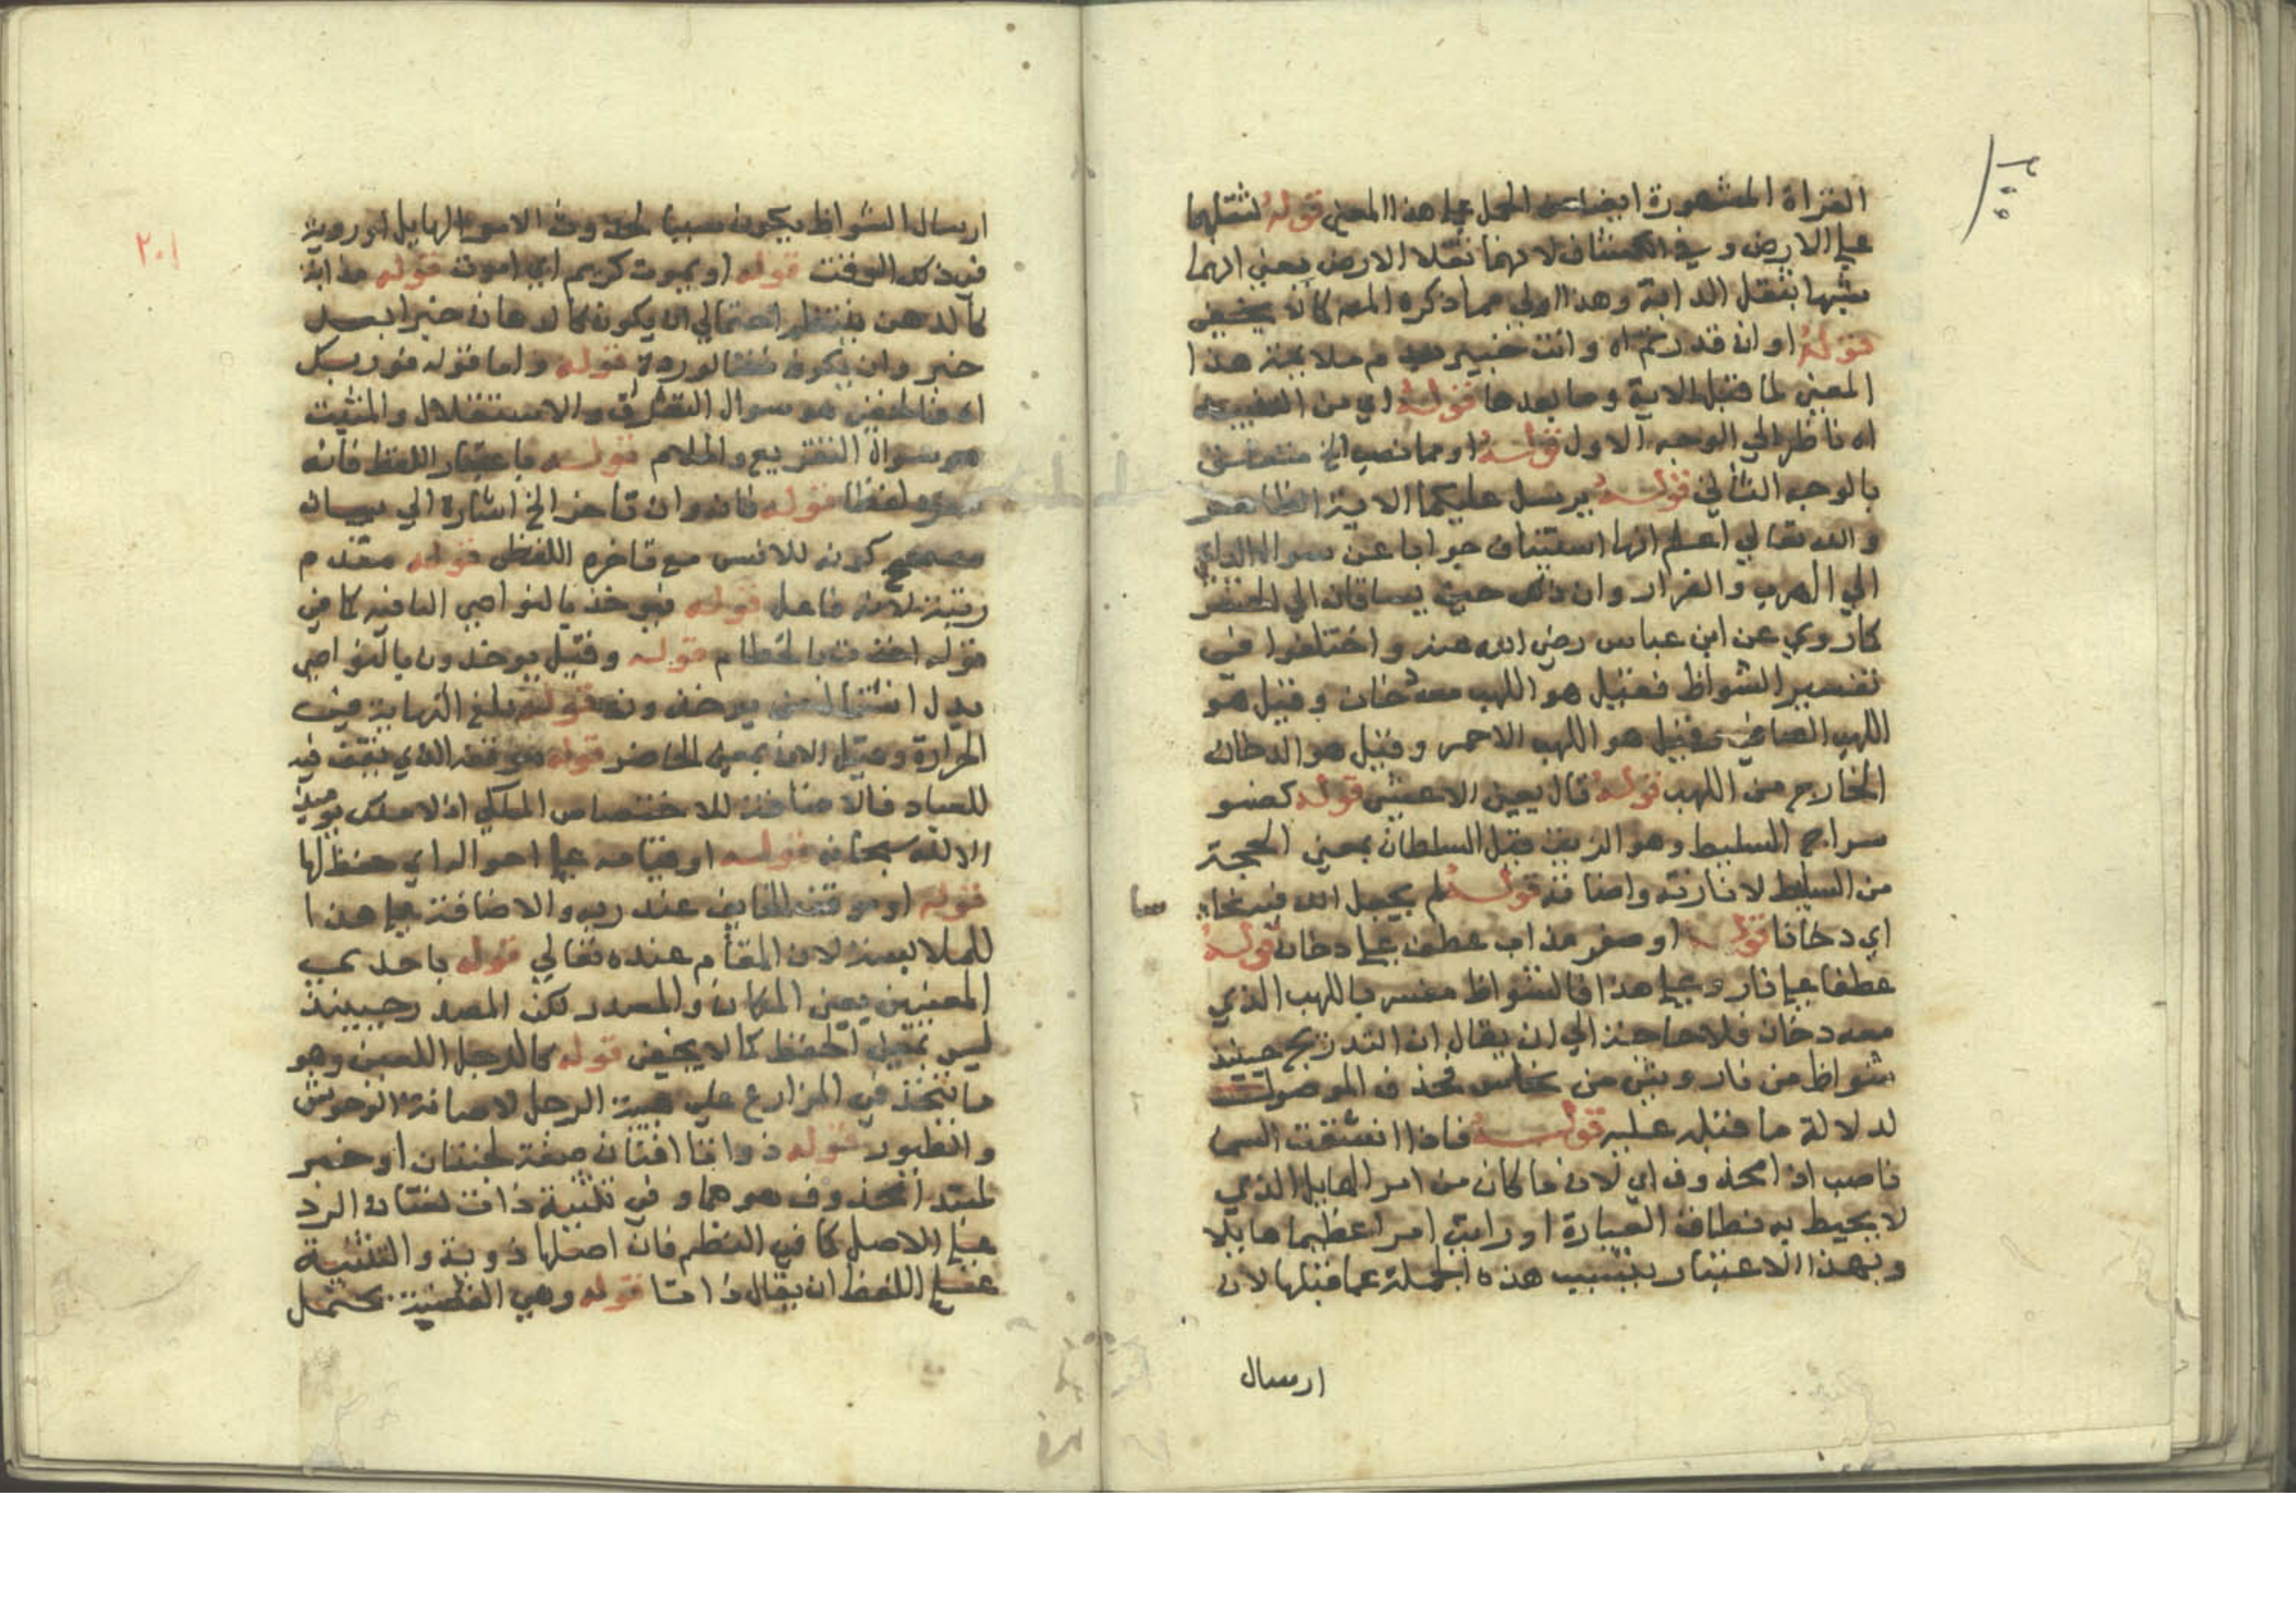 القراة المشهورة ايضا عن الحمل علي هذا المعني قوله لثقلهما
علي الارض وفي الكشاف لانهما ثقلا الارض يعني انهما
شبها بثقل الدابة وهذا اولي مما ذكره المص كما لا يخفي
قوله اوان قدرتم اه وانت خبير بعدم ملايمة هذا
المعني لما قبل الاية وما بعدها قوله اي من التنبيه
اه ناظر الي الوجه الاول قوله اومما نصب الخ متعلق
بالوجه الثاني قوله يرسل عليكما الاية الظاهر
والله تعالي اعلم انها استيناف جوابا عن سوال الداعي
الي الهرب والفرار وان ذلك حين يساقان الي المحشر
كما روي عن ابن عباس رضي الله عنه واختلفوا في
تفسير الشواظ فقيل هو اللهب معه دخان وقيل هو
اللهب الصافي وقيل هو اللهب الاحمر وقيل هو الدخان
الخارج من اللهب قوله قال يعين الاعشي قوله كضو
سراج السليط وهو الزيت قيل السلطان بمعني الحجة
من السليط لانارته واضافة قوله لم يجعل الله فيه نحاسا
اي دخانا قوله اوصفر مذاب عطف علي دخان قوله
عطفا علي نار وعلي هذا فالشواظ مفسر باللهب الذي
معه دخان فلا حاجة الي ان يقال ان التدريج حينيذ
شواظ من نار وشي من نحاس فحذف الموصوف
لدلالة ما قبله عليه قوله فاذا انشقت السما
ناصب اذا محذوف اي لان ما كان من امر الهايل الذي
لا يحيط به نطاق العبارة او رايت امرا عظيما هايلا
وبهذا الاعتبار يتسبب هذه الجملة عما قبلها لان
ارسال
٢٠١
ارسال الشواظ يكون سببا لحدوث الامر الهايل او رويته
في ذلك الوقت قوله او يموت كريم اي اموت قوله مذابة
كالدهن ينتظم احتمالي ان يكون كالدهان خبرا بعد
خبر وان يكون نعتا لوردة قوله واما قوله فوربك
اه فالمنفي هو سوال التعرف والاستقلال والمثبت
هو سوال التقريع والملام قوله باعتبار اللفظ فانه
مفرد لفظا قوله فانه وان تاخر الخ اشارة الي بيان
مصحح كونه للانس مع تاخره اللفظي قوله متقدم
رتبة لانه فاعل قوله فيوخذ بالنواصي البافية كما في
قوله اخذت بالخطام قوله وقيل يوخذون بالنواصي
بدل اشتمال من يوخذون قوله بلغ النهاية في
الحرارة وقيل الان بمعني الحاضر قوله موقفه الذي يقف فيه
للعباد فالاضافة للاختصاص الملكي اذ لا ملك يوميذ
الا لله سبحانه قوله اوقيامه علي احواله اي حفظ لها
قوله اوموقف الخايف عند ربه والاضافة علي هذا
للملابسة لان المقام عنده تعالي قوله باحد
المعنيين يعني المكان والمصدر لكن المصدر حينيذ
ليس بمعني الحفظ كما لا يخفي قوله كالرجل اللعين وهو
ما يتخذ في المزارع علي هيية الرجل لاصافة الوحوش
والطيور قوله ذواتا افنان صفة لجنتان اوخبر
لمبتدا محذوف هوهما وفي تثنية ذات لغتان الرد
علي الاصل كما في النظم فان اصلها ذوية والتثنية
علي اللفظ ان يقال ذاتا قوله وهي الغصنة تحتمل